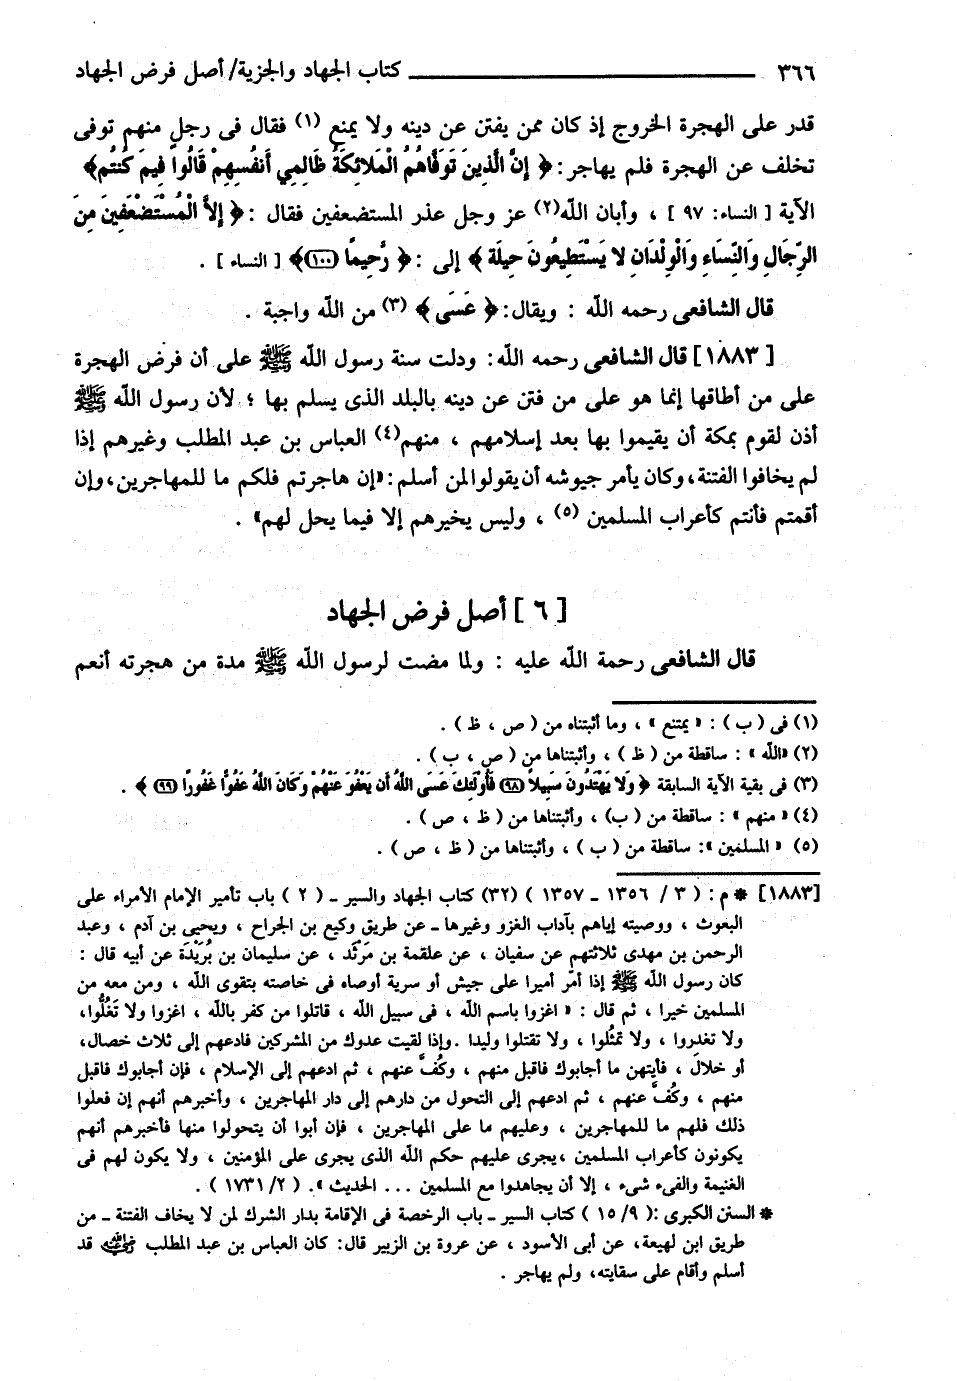 ٣٦٦ ــــــــــــــــــــــــــــــــــــ كتاب الجهاد والجزية/ أصل فرض الجهاد
قدر على الهجرة الخروج إذ كان ممن يفتن عن دينه ولا يمنع (١) فقال فى رجل منهم توفى
تخلف عن الهجرة فلم يهاجر : ﴿ إِنَّ الَّذِينَ تَوَفَّاهُمُ الْمَلائِكَةُ ظَالِمِي أَنفُسِهِمْ قَالُوا فِيمَ كُنتُمْ﴾
الآية [ النساء: ٩٧ ] ، وأبان الله(٢) عز وجل عذر المستضعفين فقال : ﴿ إِلاَّ الْمُسْتَضْعَفِينَ مِنَ
الرِّجَالِ وَالنِّسَاءِ وَالْوِلْدَانِ لا يَسْتَطِيعُونَ حِيلَة ﴾ إلى : ﴿ رَّحِيمًا (١٠٠)﴾ [ النساء ] .
قال الشافعى رحمه الله : ويقال: ﴿ عَسَى ﴾ (٣) من الله واجبة .
[ ١٨٨٣ ] قال الشافعى رحمه الله: ودلت سنة رسول الله ﷺ على أن فرض الهجرة
على من أطاقها إنما هو على من فتن عن دينه بالبلد الذى يسلم بها ؛ لأن رسول الله ﷺ
أذن لقوم بمكة أن يقيموا بها بعد إسلامهم ، منهم(٤) العباس بن عبد المطلب وغيرهم إذا
لم يخافوا الفتنة، وكان يأمر جيوشه أن يقولوا لمن أسلم : «إن هاجرتم فلكم ما للمهاجرين، وإن
أقمتم فأنتم كأعراب المسلمين (٥) ، وليس يخيرهم إلا فيما يحل لهم» .
[ ٦ ] أصل فرض الجهاد
قال الشافعى رحمة الله عليه : ولما مضت لرسول الله ﷺ مدة من هجرته أنعم
(١) فى ( ب ) : « يمتنع » ، وما أثبتناه من ( ص ، ظ ) .
(٢) «الله » : ساقطة من ( ظ ) ، وأثبتناها من ( ص ، ب ) .
(٣) فى بقية الآية السابقة ﴿ وَلا يَهْتَدُونَ سَبِيلاً (٩٨) فَأُوْلَئِكَ عَسَى اللَّهُ أَن يَعْفُوَ عَنْهُمْ وَكَانَ اللَّهُ عَفُوًّا غَفُورًا (٩٩) ﴾ .
(٤) « منهم » : ساقطة من ( ب) ، وأثبتناها من ( ظ ، ص ) .
(٥) « المسلمين »: ساقطة من ( ب ) ، وأثبتناها من ( ظ ، ص ) .
[١٨٨٣] * م : ( ٣ / ١٣٥٦ ـ ١٣٥٧ ) (٣٢) كتاب الجهاد والسير ـ ( ٢ ) باب تأمير الإمام الأمراء على
البعوث ، ووصيته إياهم بآداب الغزو وغيرها ـ عن طريق وكيع بن الجراح ، ويحيى بن آدم ، وعبد
الرحمن بن مهدى ثلاثتهم عن سفيان ، عن علقمة بن مَرْثَد ، عن سليمان بن بُرَيْدَة عن أبيه قال :
كان رسول الله ﷺ إذا أمَّر أميرا على جيش أو سرية أوصاه فى خاصته بتقوى الله ، ومن معه من
المسلمين خيرا ، ثم قال : « اغزوا باسم الله ، فى سبيل الله ، قاتلوا من كفر بالله ، اغزوا ولا تَغُلُّوا،
ولا تغدروا ، ولا تمثُلوا ، ولا تقتلوا وليدا .وإذا لقيت عدوك من المشركين فادعهم إلى ثلاث خصال،
أو خلال ، فأيتهن ما أجابوك فاقبل منهم ، وكُفَّ عنهم ، ثم ادعهم إلى الإسلام ، فإن أجابوك فاقبل
منهم ، وكُفَّ عنهم ، ثم ادعهم إلى التحول من دارهم إلى دار المهاجرين ، وأخبرهم أنهم إن فعلوا
ذلك فلهم ما للمهاجرين ، وعليهم ما على المهاجرين ، فإن أبوا أن يتحولوا منها فأخبرهم أنهم
يكونون كأعراب المسلمين ،يجرى عليهم حكم الله الذى يجرى على المؤمنين ، ولا يكون لهم فى
الغنيمة والفىء شىء ، إلا أن يجاهدوا مع المسلمين ... الحديث ». ( ٢/ ١٧٣١ ) .
* السنن الكبرى :( ٩/ ١٥ ) كتاب السير ـ باب الرخصة فى الإقامة بدار الشرك لمن لا يخاف الفتنة ـ من
طريق ابن لهيعة، عن أبى الأسود ، عن عروة بن الزبير قال: كان العباس بن عبد المطلب رضي الله عنه قد
أسلم وأقام على سقايته، ولم يهاجر .